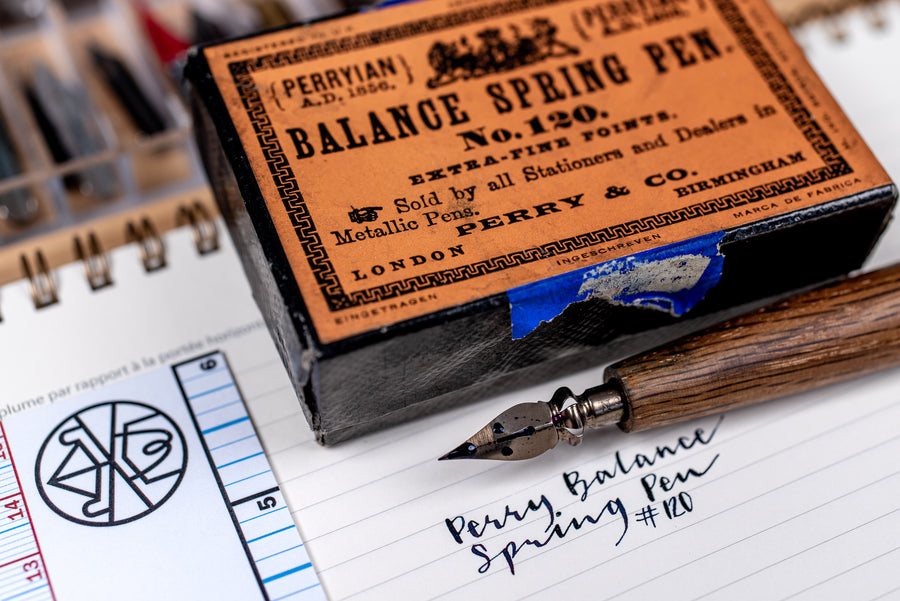 {PERRYIAN}
A.D. 1856.
BALANCE SPRING PEN.
No. 120.
EXTRA-FINE POINTS.
Sold by all Stationers and Dealers in
Metallic Pens.
PERRY & CO.
LONDON
BIRMINGHAM
EINGETRAGEN
INGESCHREVEN
MARCA DE FABRICA
plume par rapport à la portée
6
5
14
13
Perry Balance
Spring Pen
#120